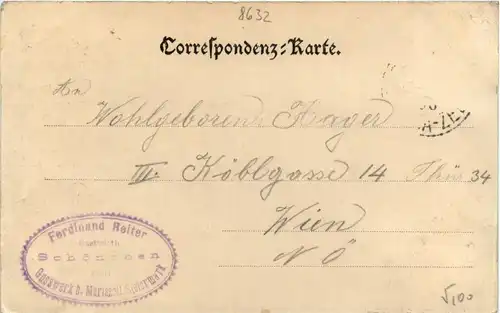 8632
Correspondenz-Karte.
An
Wohlgeboren Hager
III. Kölblgasse 14 Thür 34
Wien
N Ö
Ferdinand Reiter
Gastwirth
Schönchen
Gusswerk b. Mariazell
√100